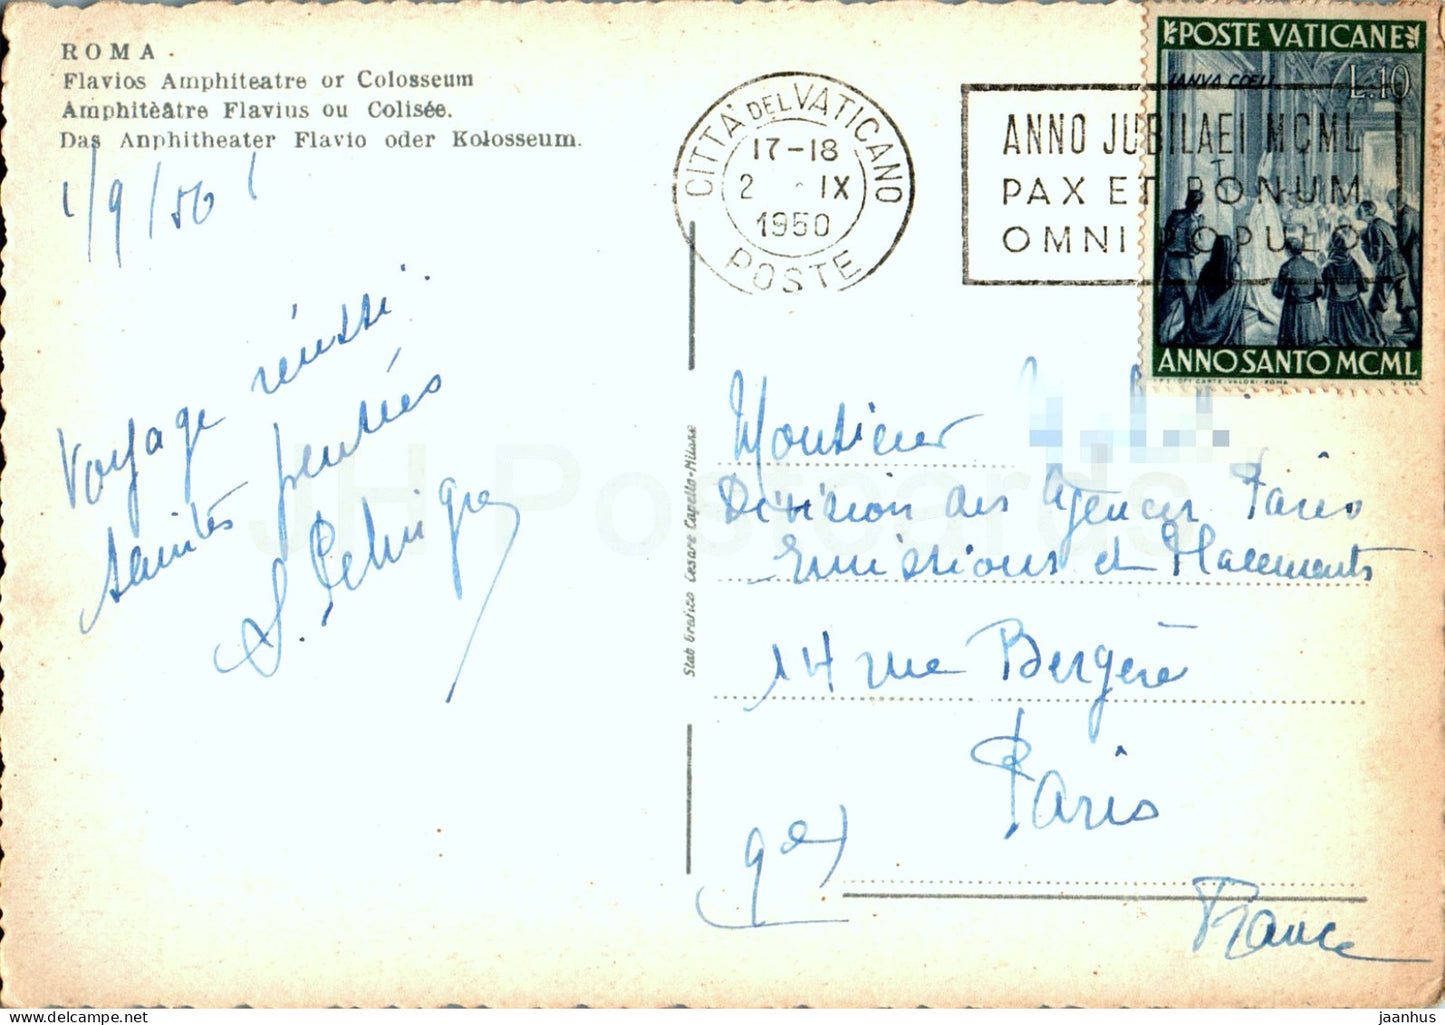 ROMA
Flavios Amphiteatre or Colosseum
Amphitèâtre Flavius ou Colisée.
Das Anphitheater Flavio oder Kolosseum.
1/9/50
Voyage réussi
Amitiés pensées
CITTÀ DEL VATICANO
17-18
2 IX
1950
POSTE
ANNO JUBILAEI MCML
PAX ET BONUM
OMNI POPULO
POSTE VATICANE
IANVA COELI
L.10
ANNO SANTO MCML
Stab Grafico Cesare Capello-Milano
Monsieur
Division des Agences Paris
Emissions et Placements
14 rue Bergère
Paris
9e
France
JH Postcards
jaanhus — https://www.delcampe.net